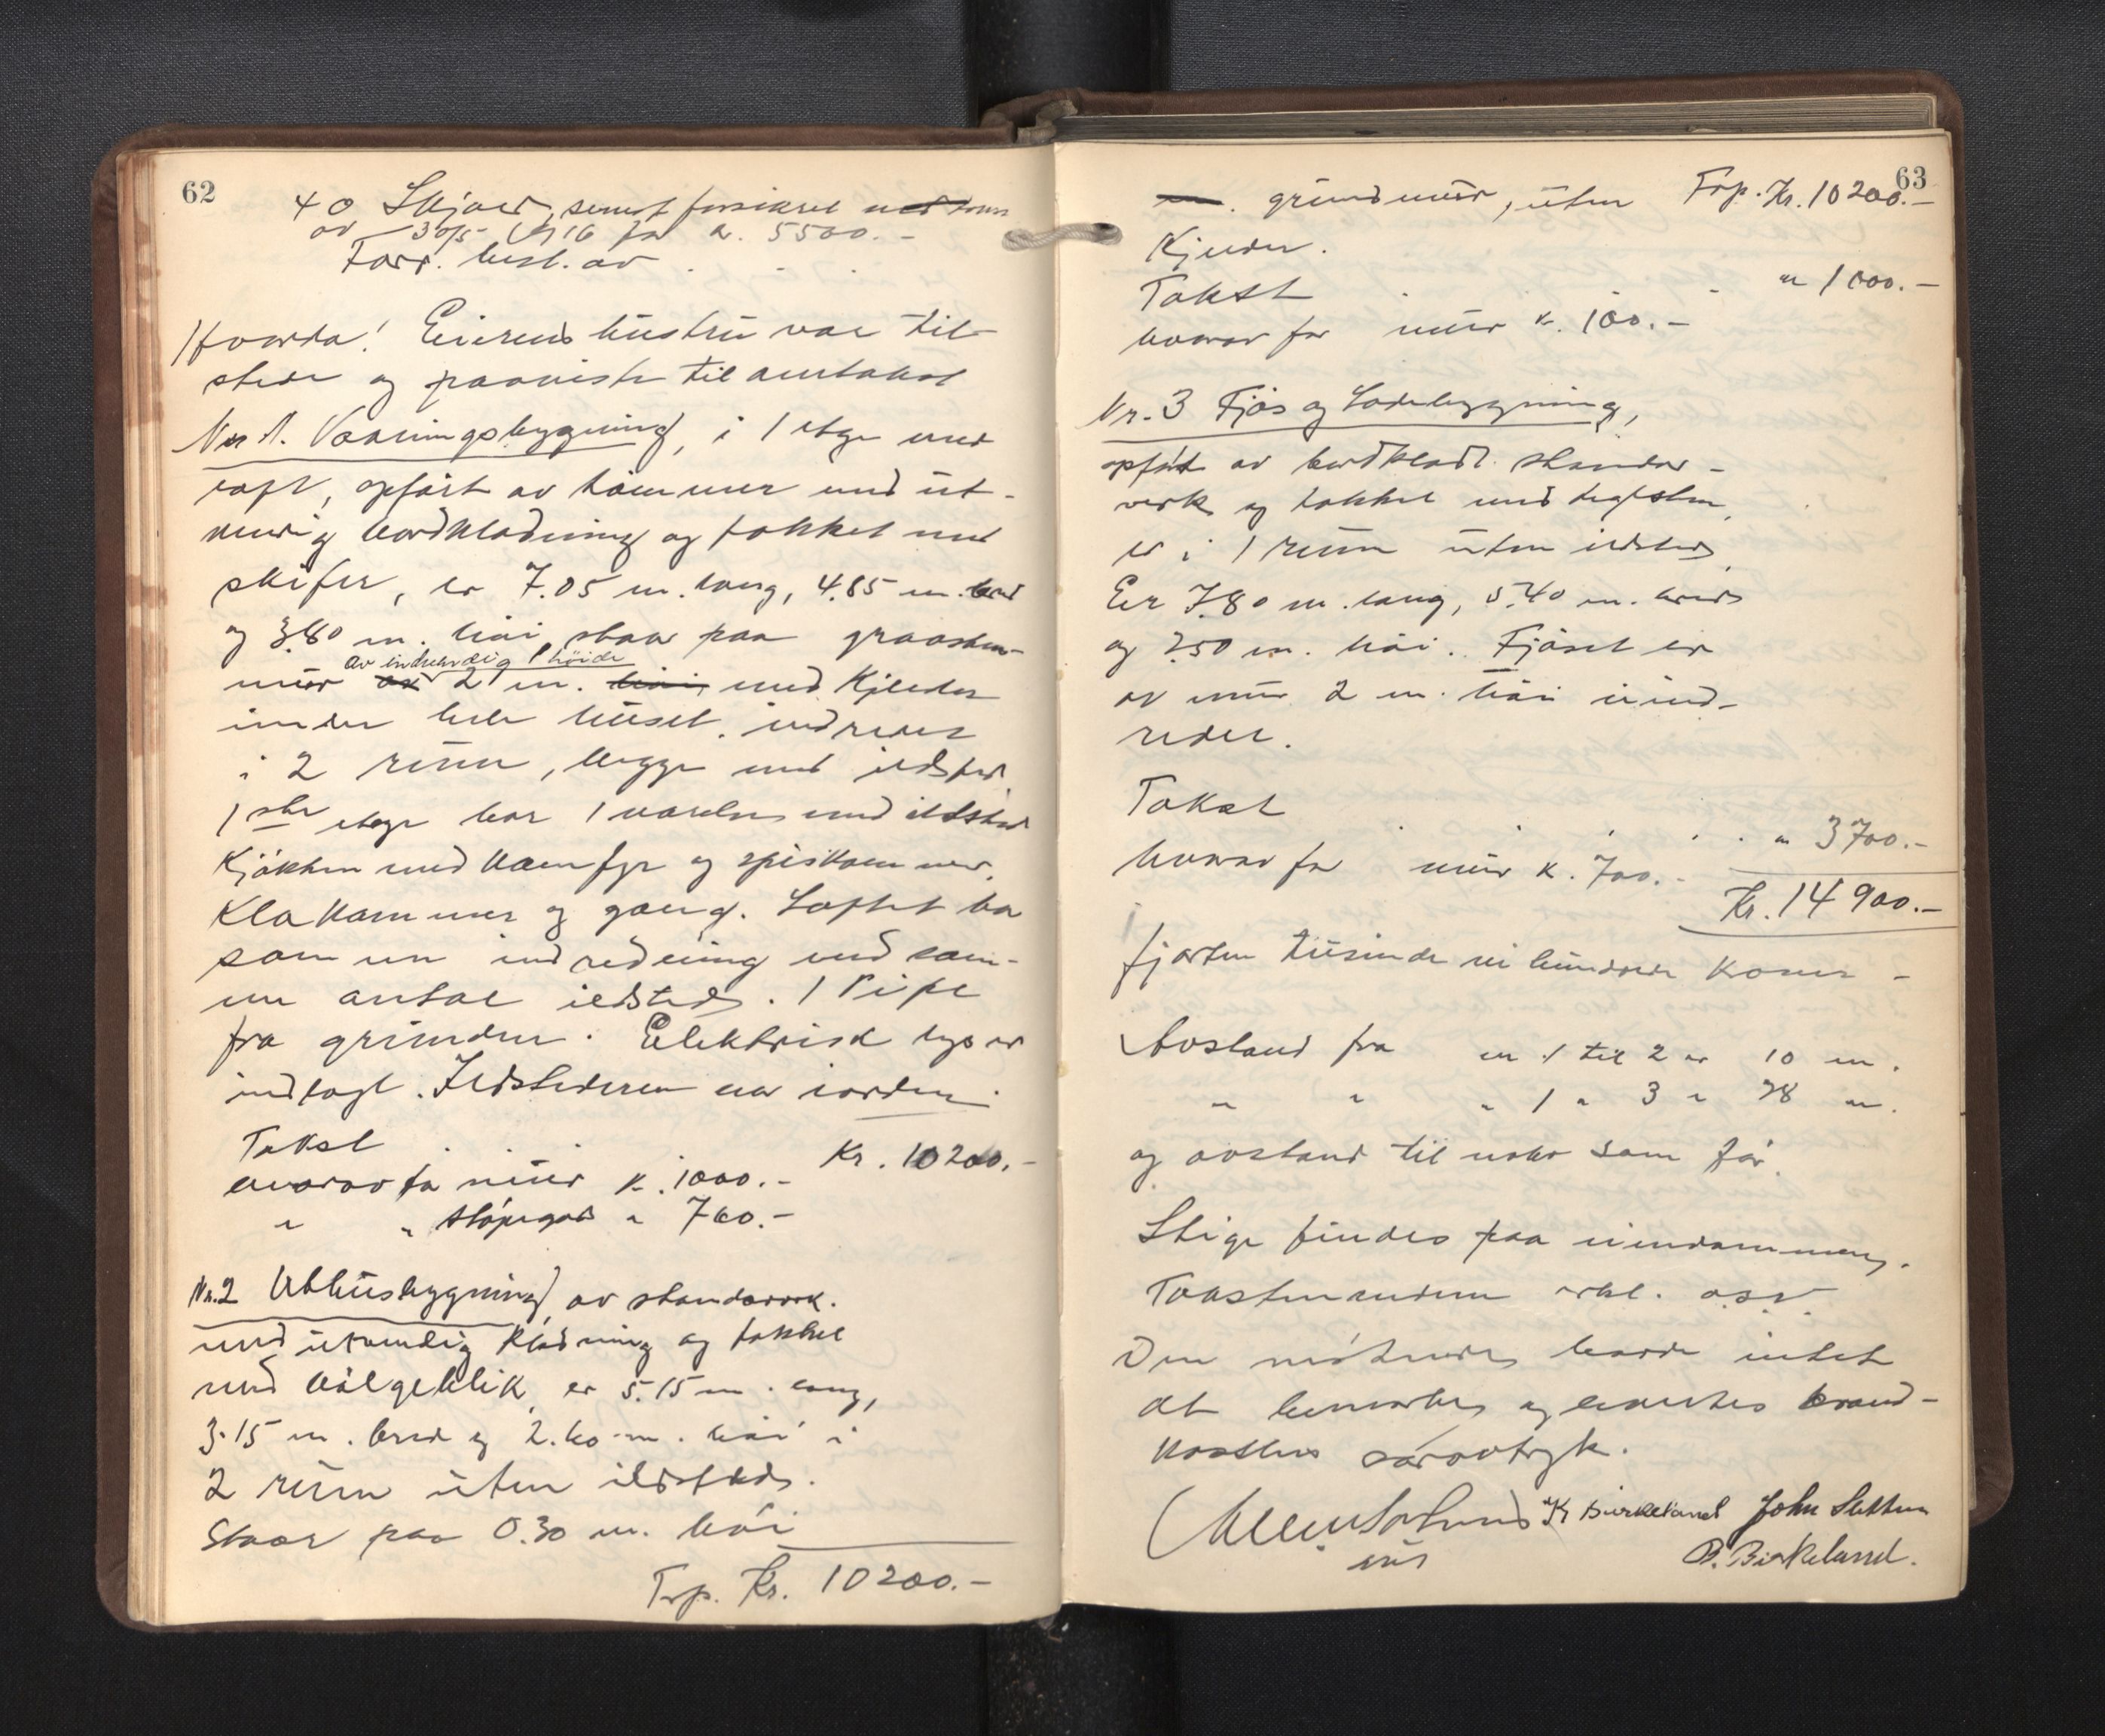 62
40 Skjær, senest forsikret
av 30/5 1916 for kr. 5500.-
Forr. best. av
Hvorda! Eierens hustru var til-
stede og paaviste til omtakst
No 1. Vaaningsbygning, i 1 etge med
loft, opført av tømmer med ut-
vendig bordklædning og tækket med
skifer, er 7.05 m. lang, 4.85 m. bred
og 3.80 m. høi, staar paa graasten-
av indvendig høide
mur av 2 m. høi, med Kjelder
under hele huset, indredet
i 2 rum, begge med ildsted.
1ste etage har 1 værelse med ildsted
Kjøkken med komfyr og spiskammer,
Kla kammer og gang. Loftet har
samme indredning med sam-
me antal ildsteder. 1 Pipe
fra grunden. Elektrisk lys er
indlagt. Ildstederne var i orden.
Takst Kr. 10200.-
hvorav for mur kr. 1000.-
" " støpegods " 700.-
Nr. 2 Uthusbygning, av standerverk.
med utvendig klædning og tækket
med bølgeblik, er 5.15 m. lang,
3.15 m. bred og 2.60 m. høi i
2 rum uten ildsted.
Staar paa 0.30 m. høi
Trp. Kr. 10200.-
63
grundmur, uten Trp. Kr. 10200.-
Kjelder.
Takst " 1000.-
hvorav for mur kr. 100.-
Nr. 3 Fjøs og Ladebygning,
opført av bordklædt stander-
verk og tækket med teglsten,
er i 1 rum uten ildsted,
Er 7.80 m. lang, 5.40 m. bred
og 2.50 m. høi. Fjøset er
av mur 2 m. høi uind-
redet.
Takst " 3700.-
hvorav for mur kr. 700.-
Kr. 14900.-
fjorten tusinde ni hundrede Kroner -
Avstand fra nr 1 til 2 er 10 m.
" " " 1 " 3 " 28 m.
og avstand til nabo som før.
Stige findes paa eiendommen.
Takstmændene erkl. o.s.v.
Den møtende havde intet
at bemerke og leveres brand-
kassens særavtryk.
K Birkeland John Sletten
B. Birkeland.